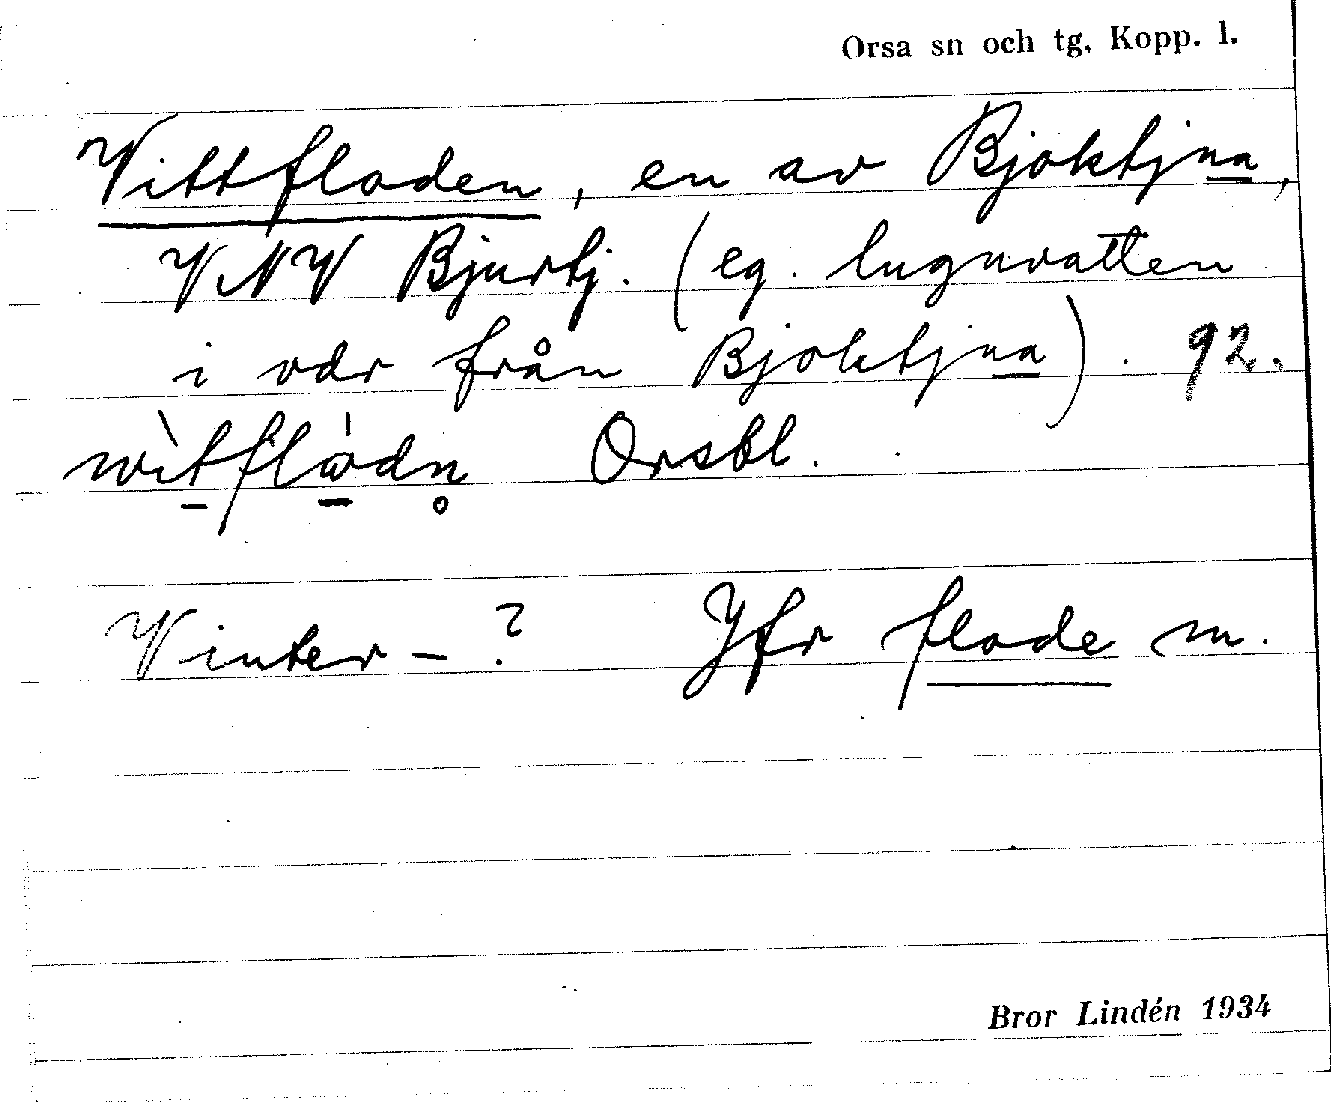 Orsa sn och tg, Kopp. l.
Vittfloden, en av Bjoktjna,
VNV Bjurtj. (eg. lugnvatten
i vdr från Bjoktjna). 92.
wìtflòdn̥ Orsbl.
Vinter-? Jfr flode m.
Bror Lindén 1934